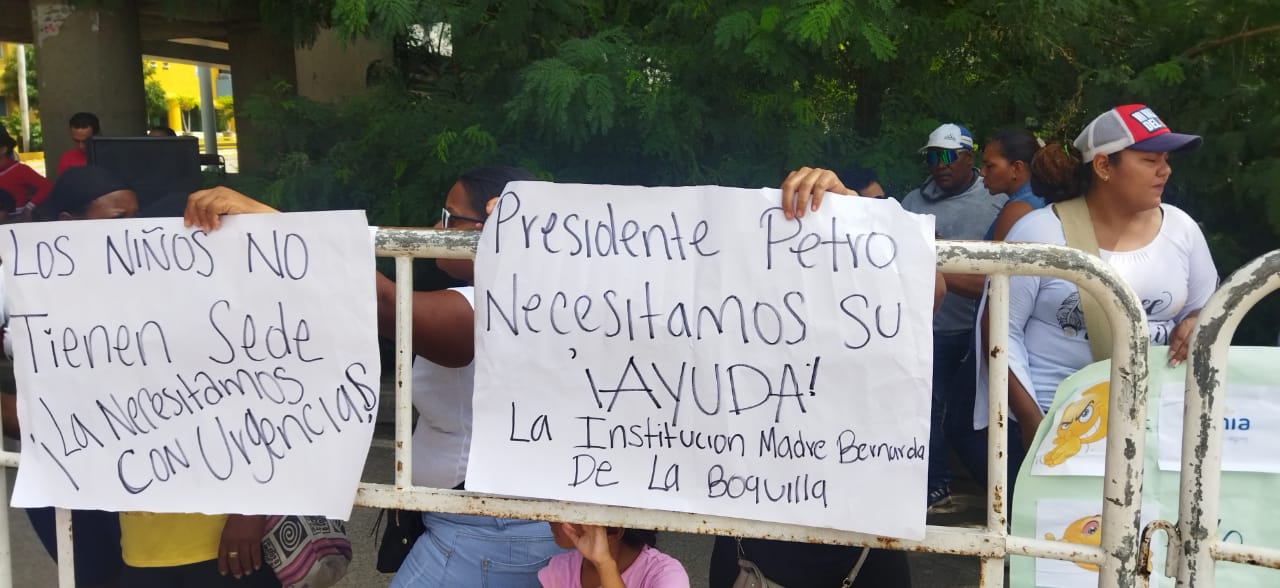 LOS NIÑOS NO
Tienen Sede
¡La Necesitamos
CON Urgencias!
Presidente Petro
Necesitamos su
¡AYUDA!
La Institucion Madre Bernarda
De La Boquilla